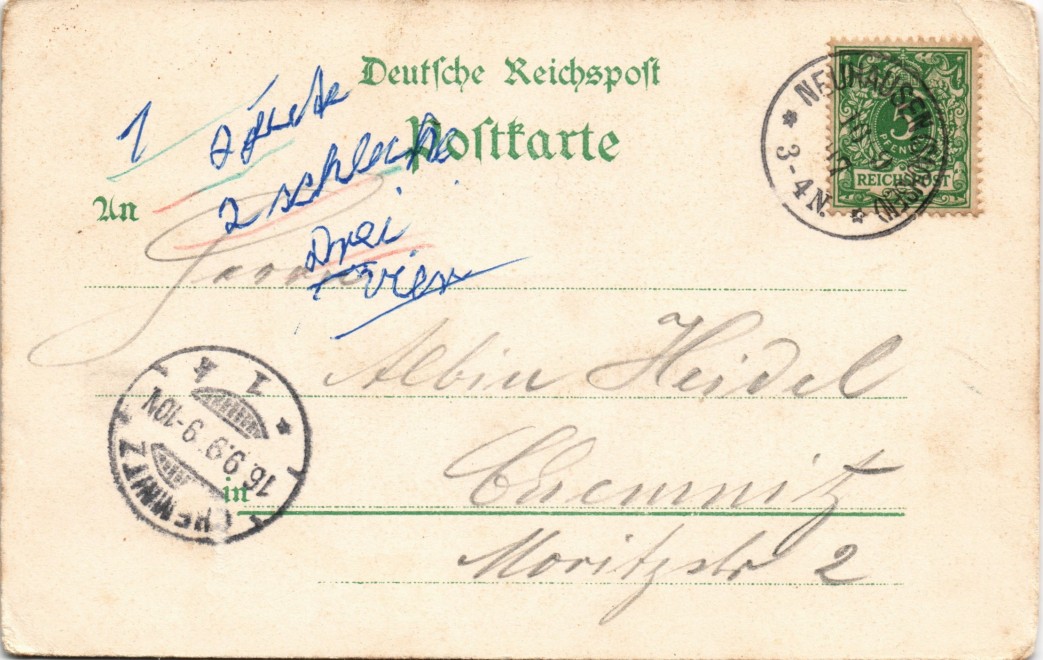 Deutsche Reichspost
Postkarte
An
1
2 schlechte
Drei
vier
Herrn
Albin Heidel
in
Chemnitz
Moritzstr 2
NEUHAUSEN
3-4N.
5
PFENNIG
REICHSPOST
CHEMNITZ
16.9.99. 9-10N
1